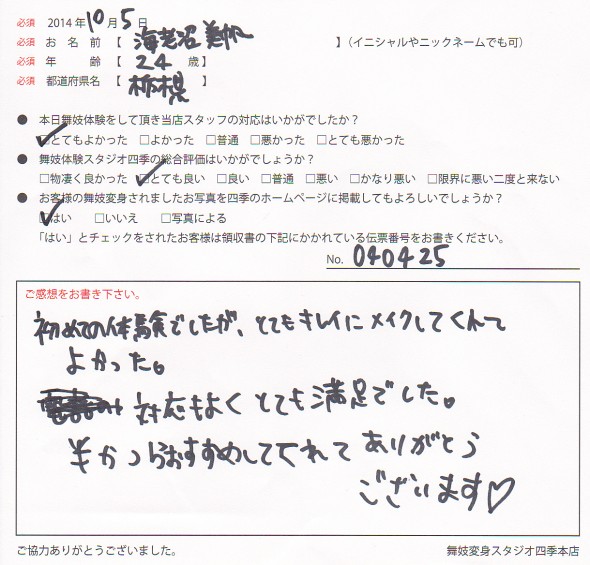 必須 2014年10月5日
必須 お名前【 海老沼 美帆 】(イニシャルやニックネームでも可)
必須 年齢【 24 歳】
必須 都道府県名【 栃木県 】
● 本日舞妓体験をして頂き当店スタッフの対応はいかがでしたか？
☑とてもよかった □よかった □普通 □悪かった □とても悪かった
● 舞妓体験スタジオ四季の総合評価はいかがでしょうか？
□物凄く良かった ☑とても良い □良い □普通 □悪い □かなり悪い □限界に悪い二度と来ない
● お客様の舞妓変身されましたお写真を四季のホームページに掲載してもよろしいでしょうか？
☑はい □いいえ □写真による
「はい」とチェックをされたお客様は領収書の下記にかかれている伝票番号をお書きください。
No. 040425
ご感想をお書き下さい。
初めての体験でしたが、とてもキレイにメイクしてくれて
よかった。
対応もよくとても満足でした。
半かつらおすすめしてくれてありがとう
ございます♡
ご協力ありがとうございました。
舞妓変身スタジオ四季本店